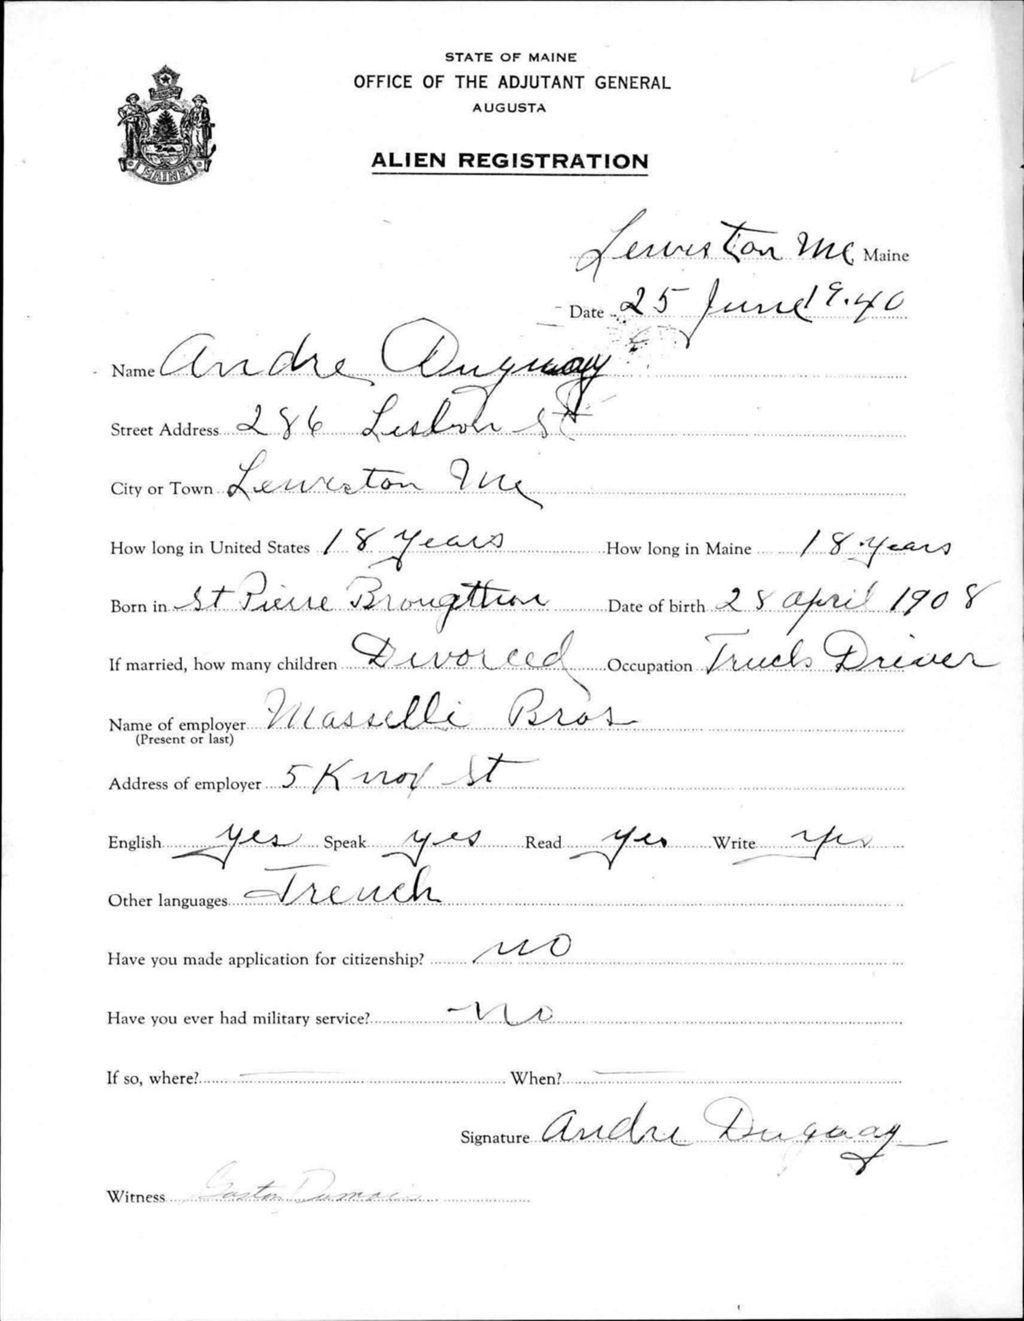 STATE OF MAINE
OFFICE OF THE ADJUTANT GENERAL
AUGUSTA
ALIEN REGISTRATION
MAINE
Lewiston Me Maine
Date 25 June 1940
Name Andre Duguay
Street Address 286 Lisbon St
City or Town Lewiston Me
How long in United States 18 Years How long in Maine 18 years
Born in St Pierre Brougttron Date of birth 28 April 1908
If married, how many children Divorced Occupation Truck Driver
Name of employer Masselli Bros
(Present or last)
Address of employer 5 Knox St
English yes Speak yes Read yes Write yes
Other languages French
Have you made application for citizenship? no
Have you ever had military service? no
If so, where? — When? —
Signature Andre Duguay
Witness Gaston Dumais